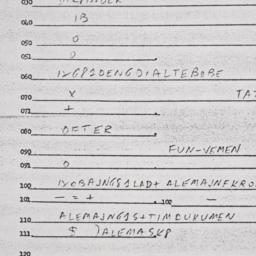 030
040 1B
050 0
051 0
060 IXGP1DENGDIALTEBOBE
070 X TA
071 +
080 OFTER
090 FUN-VEMEN
091 0
100 ALEMAJNEKRO
101 - = + 102 -
110 ALEMAJNGIS+TIMDUKUMEN
111 $ )ALEMASKP
120